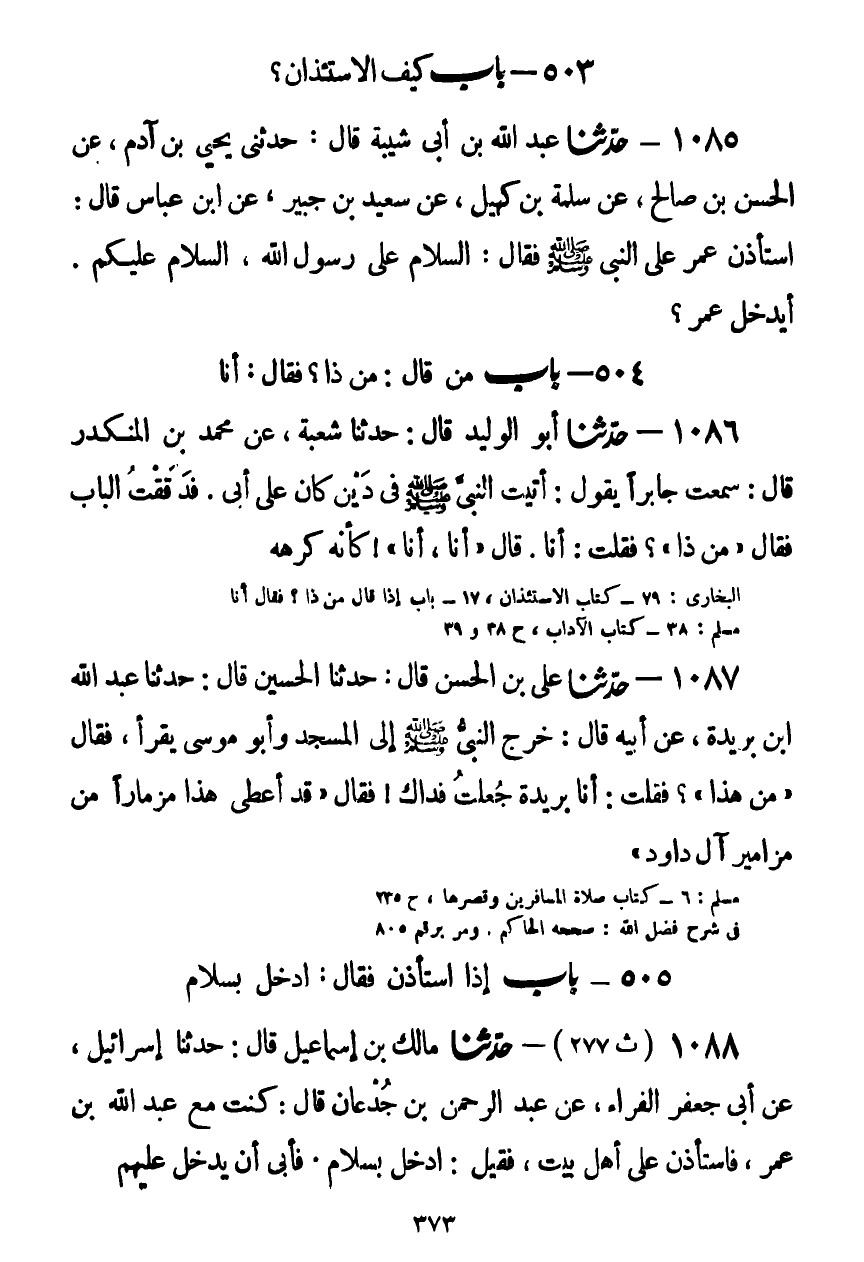 ٥٠٣ — باب كيف الاستئذان ؟
١٠٨٥ — حدّثنا عبد الله بن أبى شيبة قال : حدثنى يحيي بن آدم ، عن
الحسن بن صالح ، عن سلمة بن كهيل ، عن سعيد بن جبير ، عن ابن عباس قال :
استأذن عمر على النبى ﷺ فقال : السلام على رسول الله ، السلام عليكم .
أيدخل عمر ؟
٥٠٤ — باب من قال : من ذا ؟ فقال : أنا
١٠٨٦ — حدّثنا أبو الوليد قال : حدثنا شعبة ، عن محمد بن المنكدر
قال : سمعت جابراً يقول : أتيت النبىَّ ﷺ فى دَيْن كان على أبى . فَدَقَقْتُ الباب
فقال « من ذا » ؟ فقلت : أنا . قال « أنا ، أنا » ! كأنه كرهه
البخارى : ٧٩ — كتاب الاستئذان ، ١٧ — باب إذا قال من ذا ؟ فقال أنا
مسلم : ٣٨ — كتاب الآداب ، ح ٣٨ و ٣٩
١٠٨٧ — حدّثنا على بن الحسن قال : حدثنا الحسين قال : حدثنا عبد الله
ابن بريدة ، عن أبيه قال : خرج النبىُّ ﷺ إلى المسجد وأبو موسى يقرأ ، فقال
« من هذا » ؟ فقلت : أنا بريدة جُعلتُ فداك ! فقال « قد أعطى هذا مزماراً من
مزامير آل داود »
مسلم : ٦ — كتاب صلاة المسافرين وقصرها ، ح ٢٣٥
فى شرح فضل الله : صححه الحاكم . ومر برقم ٨٠٥
٥٠٥ — باب إذا استأذن فقال : ادخل بسلام
١٠٨٨ ( ث ٢٧٧ ) — حدّثنا مالك بن إسماعيل قال : حدثنا إسرائيل ،
عن أبى جعفر الفراء ، عن عبد الرحمن بن جُدْعان قال : كنت مع عبد الله بن
عمر ، فاستأذن على أهل بيت ، فقيل : ادخل بسلام . فأبى أن يدخل عليهم
٣٧٣